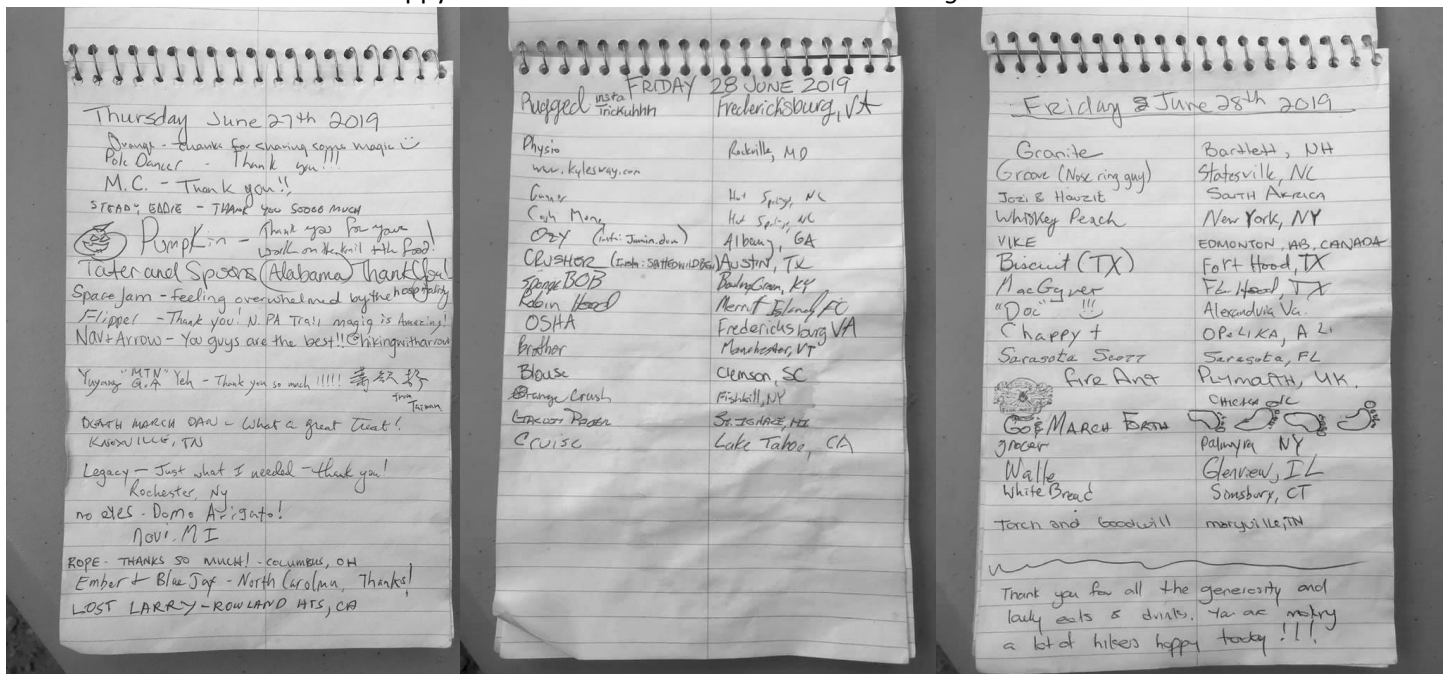 Thursday June 27th 2019
Orange - thanks for sharing some magic
Pole Dancer - Thank you!!!
M.C. - Thank you!!
STEADY EDDIE - THANK YOU SOOOO MUCH
Pumpkin - Thank you for your
work on the trail + the food!
Tater and Spoons (Alabama) Thank You!
Space Jam - feeling overwhelmed by the hospitality
Flipper - Thank you! N. PA Trail magic is Amazing!
Nav + Arrow - You guys are the best!! @hikingwitharrow
"MTN" Yeh - Thank you so much !!!!!
from
Taiwan
DEATH MARCH DAN - What a great treat!
KNOXVILLE, TN
Legacy - Just what I needed - thank you!
Rochester, Ny
no eyes - Domo Arigato!
Novi. MI
ROPE - THANKS SO MUCH! - COLUMBUS, OH
Ember + Blue Jay - North Carolina, Thanks!
LOST LARRY - ROWLAND HTS, CA
FRIDAY 28 JUNE 2019
Rugged insta Trickuhhh Fredericksburg, VA
Physio Rockville, MD
www.kylesway.com
Hot Springs, NC
Cash Money Hot Springs, NC
OZY Albany, GA
CRUSHER AUSTIN, TX
Sponge BOB Bowling Green, KY
Robin Hood Merritt Island,
OSHA Fredericksburg VA
Brother Manchester, VT
Blouse Clemson, SC
Orange Crush Fishkill, NY
ST. IGNACE, MI
Cruise Lake Tahoe, CA
Friday June 28th 2019
Granite Bartlett, NH
Groove (Nose ring guy) Statesville, NC
Jozi & Howzit South Africa
Whiskey Peach New York, NY
VIKE EDMONTON, AB, CANADA
Biscuit (TX) Fort Hood, TX
MacGyver Ft. Hood, TX
"Doc" !!! Alexandria Va.
Chappy + OPELIKA, AL
Sarasota Scott Sarasota, FL
Fire Ant PLYMOUTH, UK.
MARCH FORTH
grocer Palmyra NY
Walle Glenview, IL
White Bread Simsbury, CT
Torch and Goodwill maryville, TN
Thank you for all the generosity and
eats & drinks. You are making
a lot of hikers happy today!!!